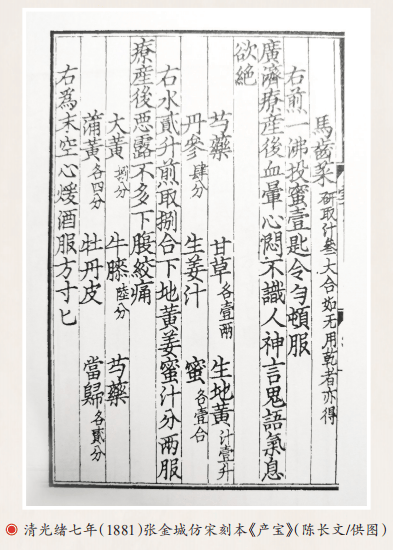 馬齒菜研取汁叁大合如无用乾者亦得
右煎一沸投蜜壹匙令匀頓服
廣濟療産後血暈心悶不識人神言鬼語氣息
欲絶
芍藥 甘草各壹兩 生地黄汁壹升
丹參肆分 生姜汁 蜜各壹合
右水貳升煎取捌合下地黄姜蜜汁分兩服
療産後惡露不多下腹絞痛
大黄捌分 牛膝陸分 芍藥
蒲黄各四分 牡丹皮 當歸各貳分
右爲末空心煖酒服方寸匕
清光绪七年(1881)张金城仿宋刻本《产宝》(陈长文/供图)